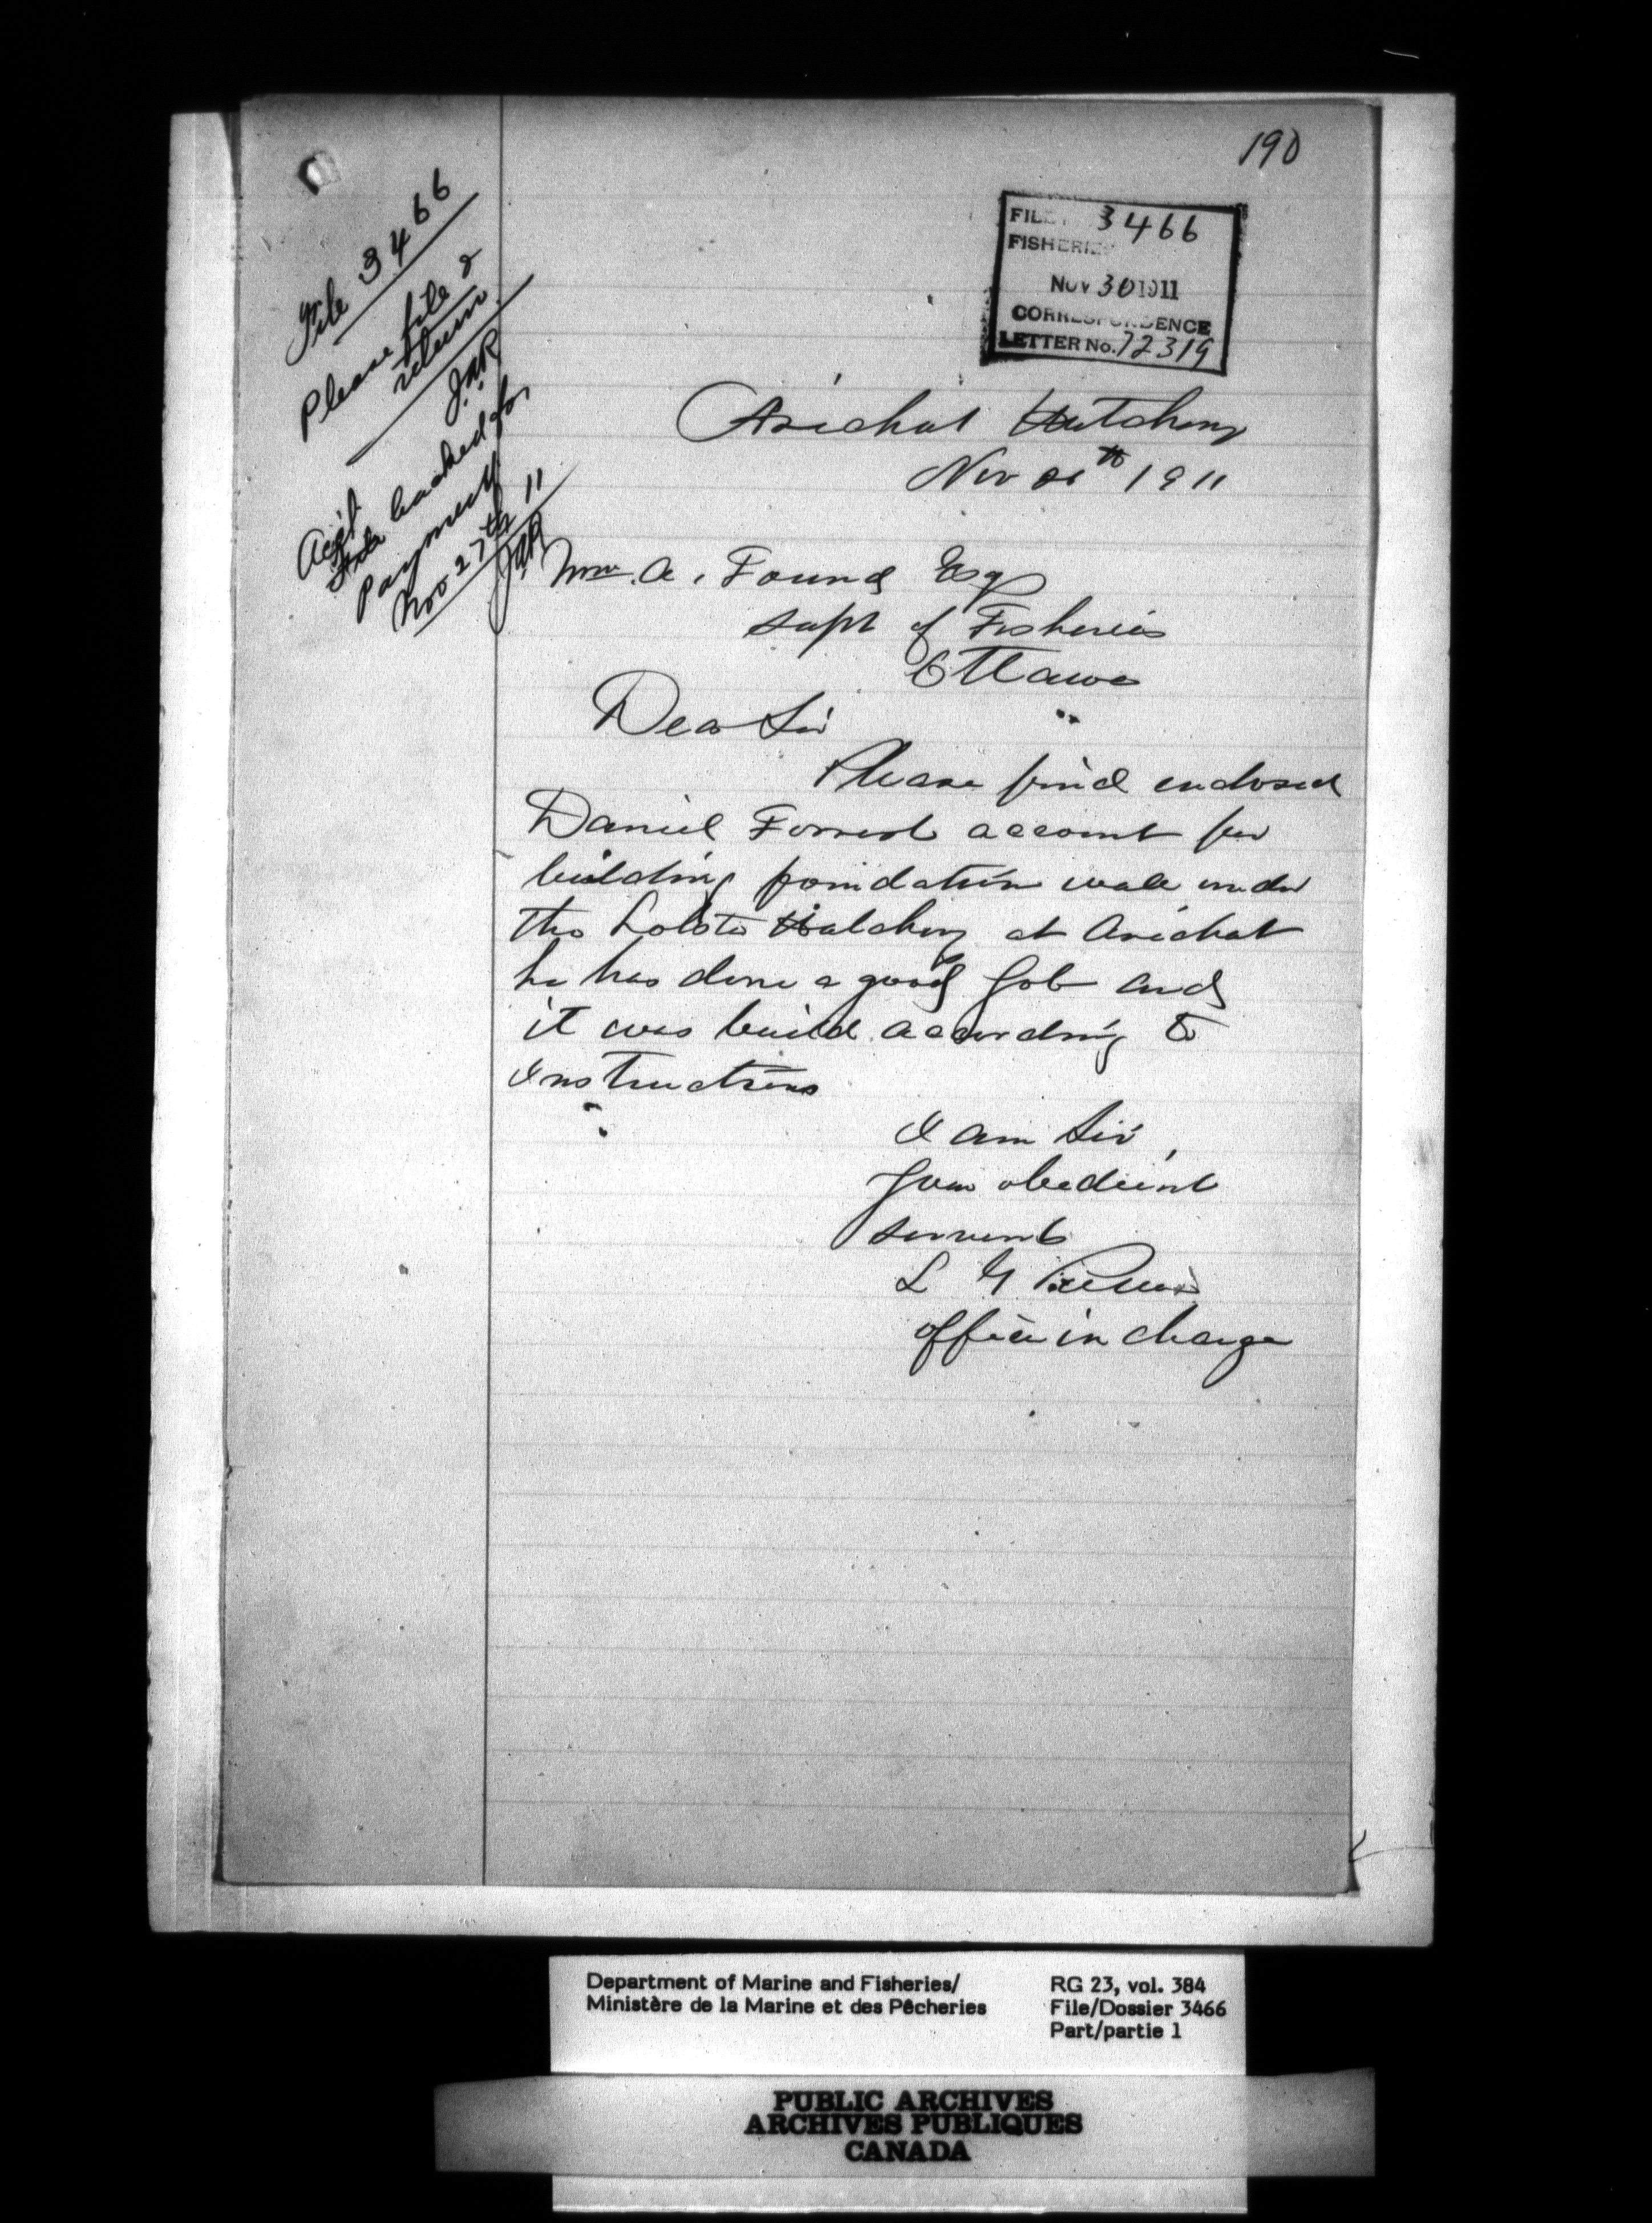 190
File 3466
Please file &
return
J.A.R
Acct
backed for
payment
Nov 27th 11
JAR
FILE 3466
FISHERIES
NOV 30 1911
CORRESPONDENCE
LETTER No. 72319
Arichat Hatchery
Nov 1911
Wm. A. Found Esq
Supt of Fisheries
Ottawa
Dear Sir
Please find enclosed
Daniel Forrest account for
building foundation wall under
the Lobster Hatchery at Arichat
he has done a good Job and
it was build according to
instructions
I am Sir,
Your obedient
servent
L G
officer in charge
Department of Marine and Fisheries/
Ministère de la Marine et des Pêcheries
RG 23, vol. 384
File/Dossier 3466
Part/partie 1
PUBLIC ARCHIVES
ARCHIVES PUBLIQUES
CANADA